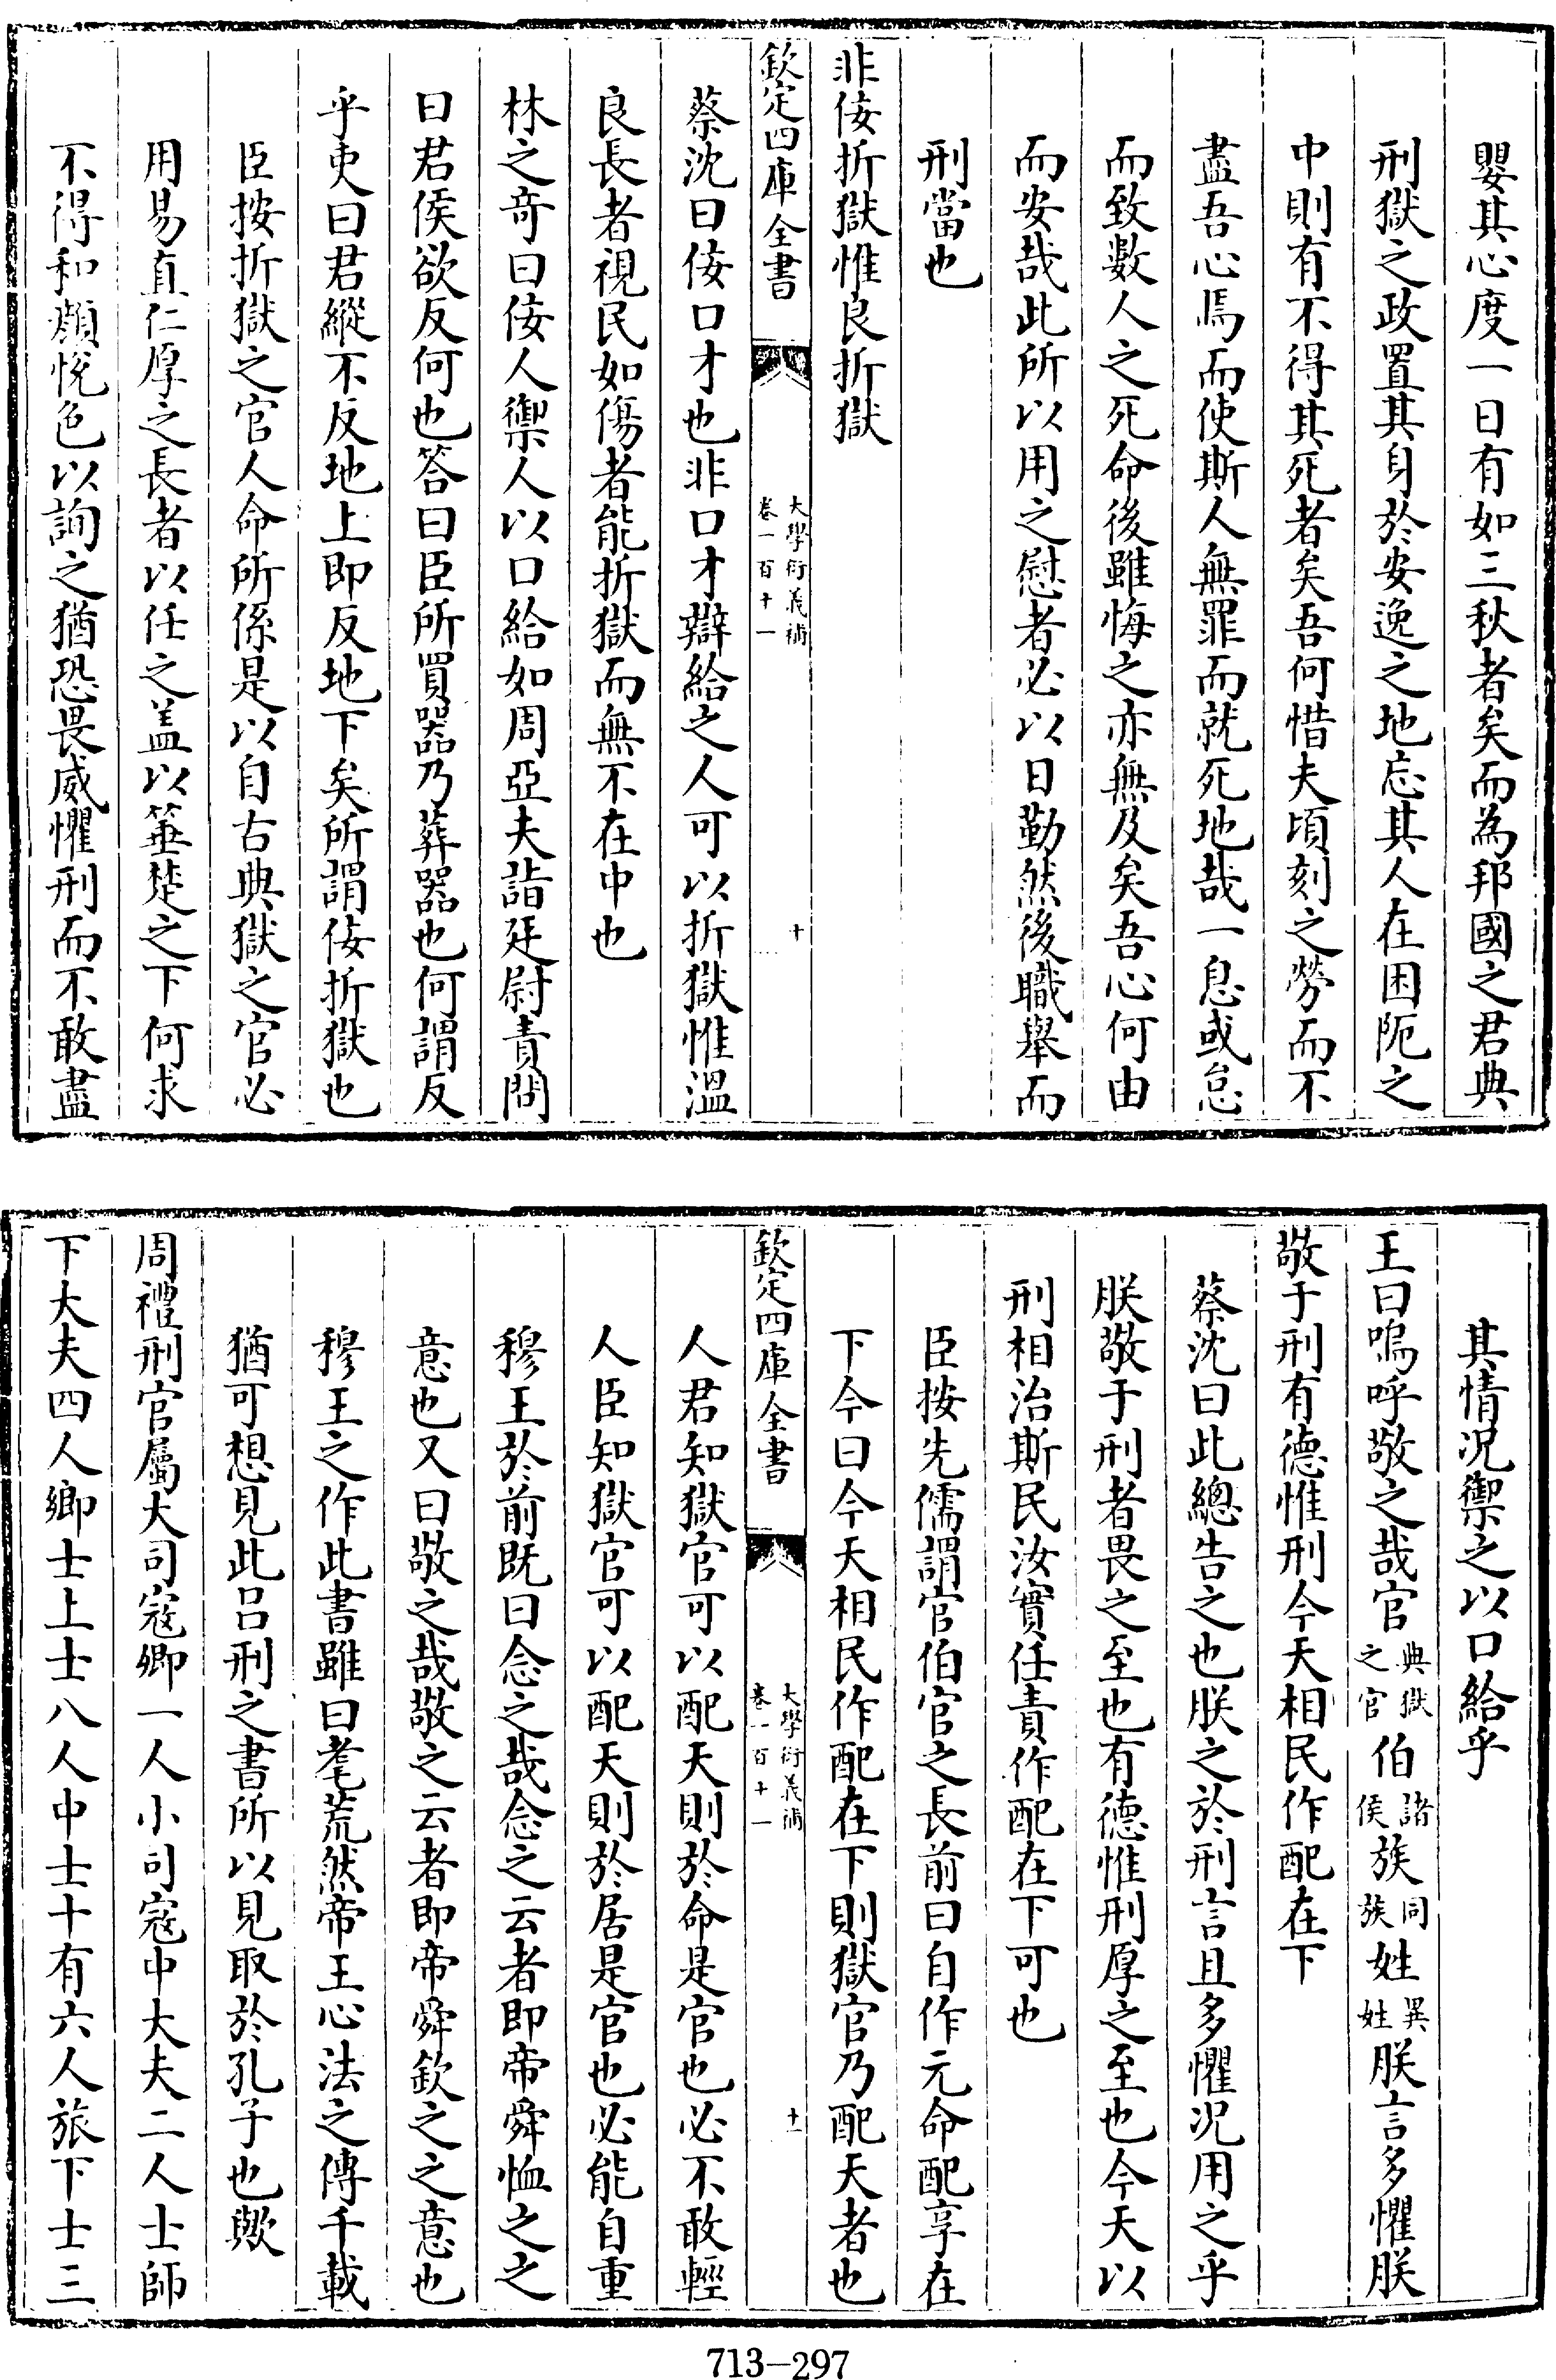 嬰其心度一日有如三秋者矣而為邦國之君典
刑獄之政置其身於安逸之地忘其人在困阨之
中則有不得其死者矣吾何惜夫頃刻之勞而不
盡吾心焉而使斯人無罪而就死地哉一息或怠
而致數人之死命後雖悔之亦無及矣吾心何由
而安哉此所以用之慰者必以日勤然後職舉而
刑當也
非佞折獄惟良折獄
欽定四庫全書
大學衍義補
卷一百十一
十
蔡沈曰佞口才也非口才辯給之人可以折獄惟溫
良長者視民如傷者能折獄而無不在中也
林之奇曰佞人禦人以口給如周亞夫詣廷尉責問
曰君侯欲反何也答曰臣所買器乃葬器也何謂反
乎吏曰君縱不反地上即反地下矣所謂佞折獄也
臣按折獄之官人命所係是以自古典獄之官必
用易直仁厚之長者以任之蓋以箠楚之下何求
不得和顏悅色以詢之猶恐畏威懼刑而不敢盡
其情況禦之以口給乎
王曰嗚呼敬之哉官典獄之官伯諸侯族同族姓異姓朕言多懼朕
敬于刑有德惟刑今天相民作配在下
蔡沈曰此總告之也朕之於刑言且多懼況用之乎
朕敬于刑者畏之至也有德惟刑厚之至也今天以
刑相治斯民汝實任責作配在下可也
臣按先儒謂官伯官之長前曰自作元命配享在
下今曰今天相民作配在下則獄官乃配天者也
欽定四庫全書
大學衍義補
卷一百十一
十一
人君知獄官可以配天則於命是官也必不敢輕
人臣知獄官可以配天則於居是官也必能自重
穆王於前既曰念之哉念之云者即帝舜恤之之
意也又曰敬之哉敬之云者即帝舜欽之之意也
穆王之作此書雖曰耄荒然帝王心法之傳千載
猶可想見此呂刑之書所以見取於孔子也歟
周禮刑官屬大司寇卿一人小司寇中大夫二人士師
下大夫四人鄉士上士八人中士十有六人旅下士三
713-297